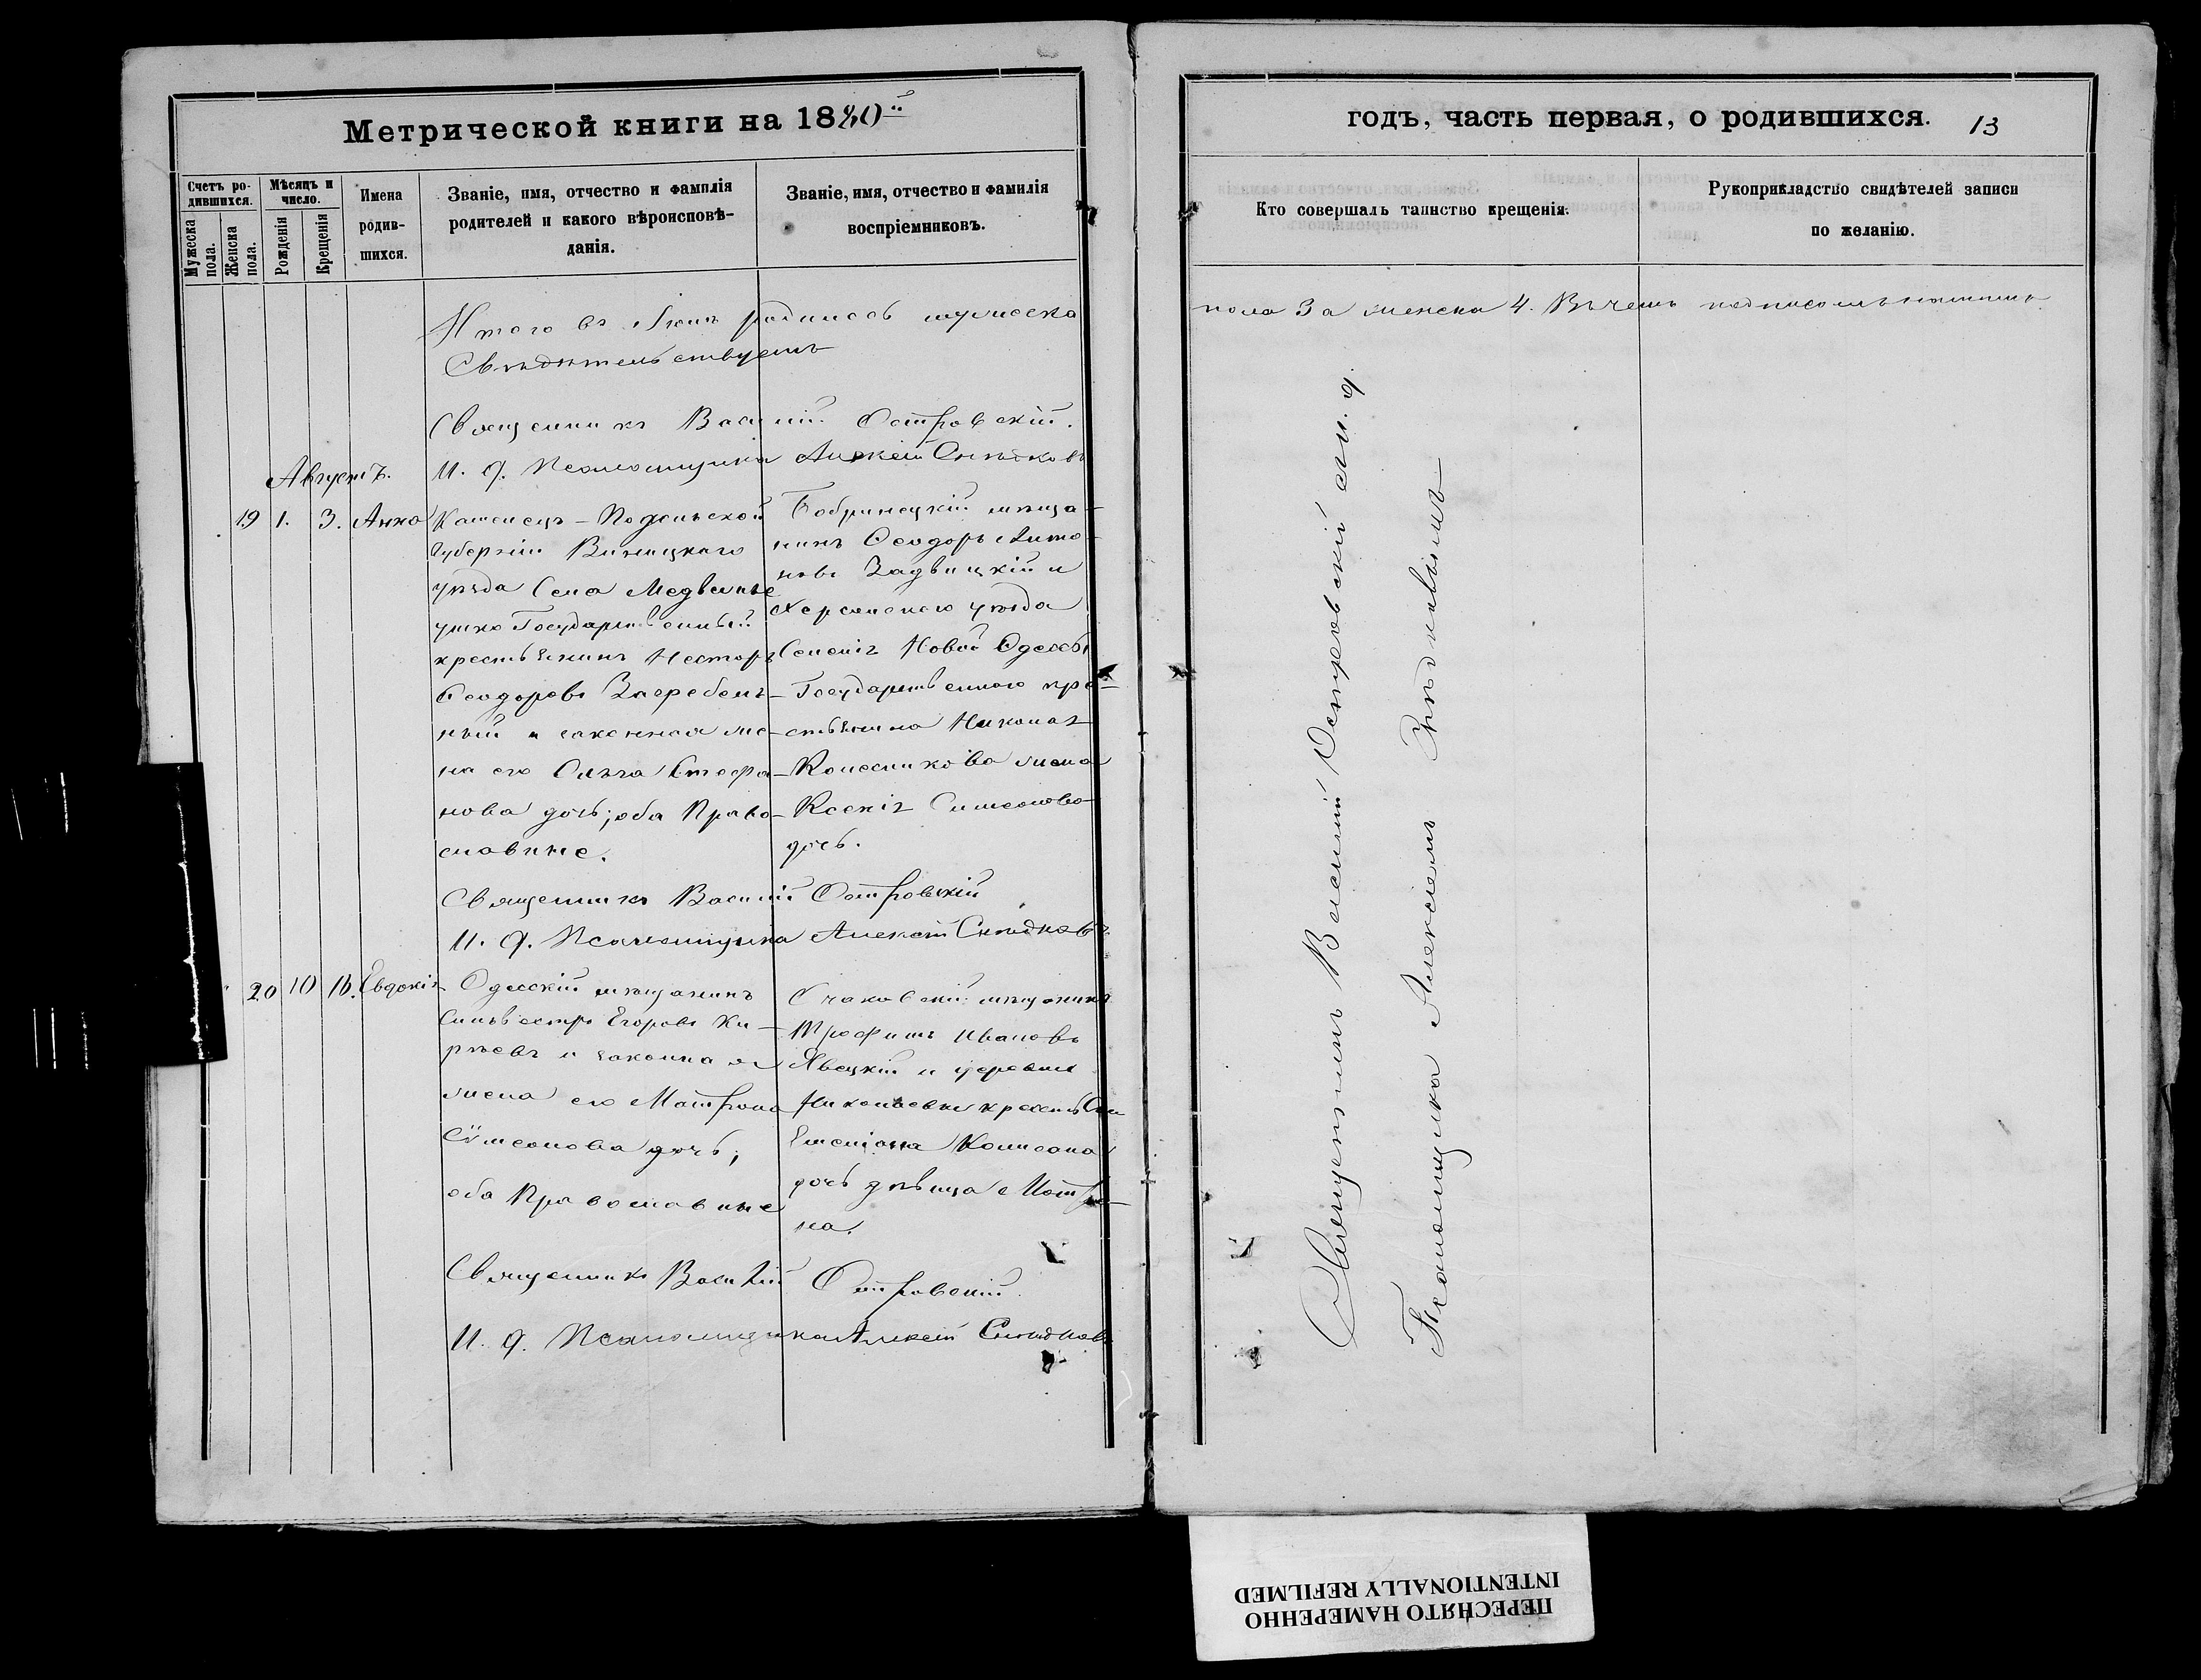 Метрической книги на 1880й
Счетъ родившихся.
Мужеска пола.
Женска пола.
Мѣсяцъ и число.
Рожденія
Крещенія
Имена родив-
шихся.
Званіе, имя, отчество и фамилія
родителей и какого вѣроисповѣ-
данія.
Званіе, имя, отчество и фамилія
воспріемниковъ.
Итого въ родилось мужеска
Свидѣтельствуемъ
Священникъ Василій Островскій.
И. д. Псаломщика Алексѣй
Августъ.
19 1. 3. Анна
Каменецъ-Подольской
Губерніи Виницкаго
уѣзда Села Медвежье
ушко Государственный
крестьянинъ Несторъ
Ѳеодоровъ Загребель-
ный и законная же-
на его Ольга Стефа-
нова дочь; оба Право-
славные.
Бобринецкій мѣща-
нинъ Ѳеодоръ Анто-
новъ и
Херсонскаго уѣзда
Селенія Новой Одессы
Государственнаго кре-
стьянина Николая
Колесникова жена
Ксенія Симеонова
дочь.
Священникъ Василій Островскій
И. д. Псаломщика Алексѣй
20 10 Евдокія
Одесскій мѣщанинъ
Сильвестръ Егоровъ Ки-
рѣевъ и законная
жена его Матрона
Симеонова дочь;
оба Православные
Очаковскій мѣщанинъ
Трофимъ Ивановъ
и деревни
Николаевки
дочь дѣвица Матро-
на.
Священникъ Василій Островскій
И. д. Псаломщика Алексѣй
годъ, часть первая, о родившихся. 13
Кто совершалъ таинство крещенія.
Рукоприкладство свидѣтелей записи
по желанію.
пола 3 а женска 4. Въ чемъ подписомъ нашимъ
Священникъ Василій Островскій съ и. д.
Псаломщика Алексѣемъ
ПЕРЕСНЯТО НАМЕРЕННО
INTENTIONALLY REFILMED